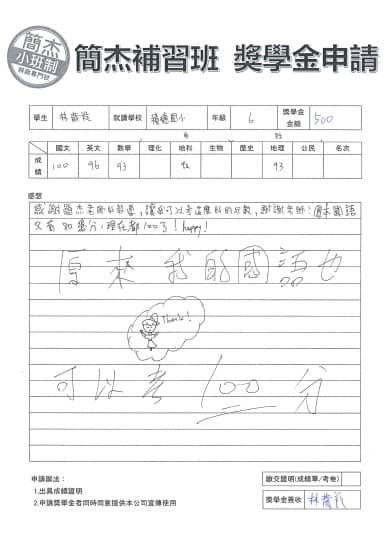 簡杰
小班制
簡杰補習班 獎學金申請
學生 林 就讀學校 國小 年級 6 獎學金金額 500
自 社
國文 英文 數學 理化 地科 生物 歷史 地理 公民 名次
成績 100 96 93 92 93
感想
感謝簡杰老師的教導,讓我可以考這麼好的分數,謝謝老師!原本國語
又有80幾分,現在都100了!happy!
原來 我的國語也
Thanks!
可以考100分
申請辦法:
1.出具成績證明
2.申請獎學金者同時同意提供本公司宣傳使用
繳交證明(成績單/考卷)
獎學金簽收 林